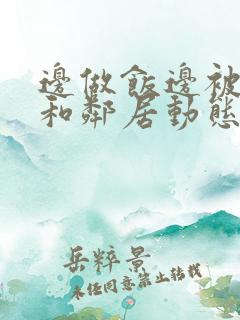 邊做飯邊被
和鄰居動態
岳粹景
未任同意禁止轉載